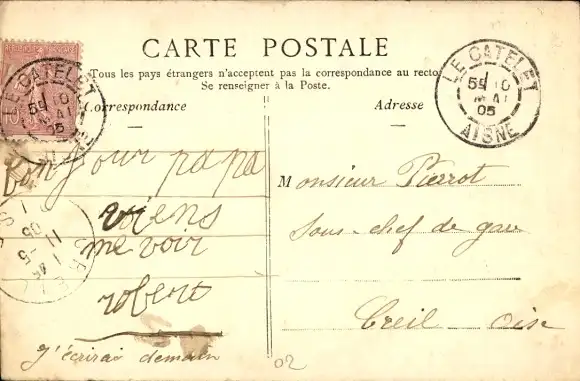 CARTE POSTALE
Tous les pays étrangers n'acceptent pas la correspondance au recto
Se renseigner à la Poste.
Correspondance
Adresse
LE CATELET
5E 10
MAI
05
AISNE
LE CATELET
5E 10
MAI
05
AISNE
bonjour papa
viens
me voir
robert
J'écrirai demain
CREIL
11 -5
05
Monsieur Pierrot
Sous-chef de gare
Creil Oise
02